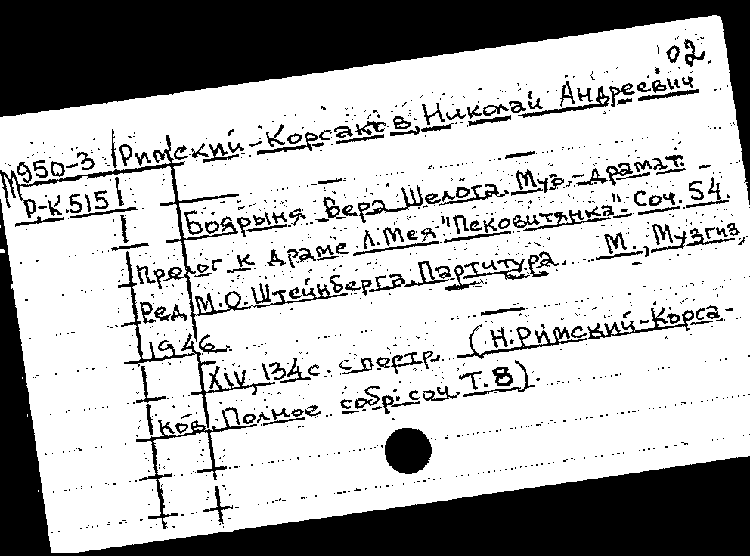 02.
М950-3 Римский-Корсаков, Николай Андреевич
Р.-К.515
Боярыня Вера Шелога. Муз.-драмат.
пролог к драме Л.Мея "Псковитянка". Соч. 54.
Ред. М.О.Штейнберга. Партитура. М., Музгиз,
1946.
XIV, 134 с. с портр. (Н.Римский-Корса-
ков. Полное собр. соч. Т. 8).